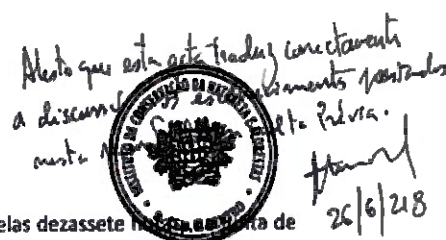 Atesto que esta acta traduz correctamente
a discussão e os esclarecimentos prestados
nesta
26/6/218
INSTITUTO DA CONSERVAÇÃO DA NATUREZA E FLORESTAS
elas dezassete de